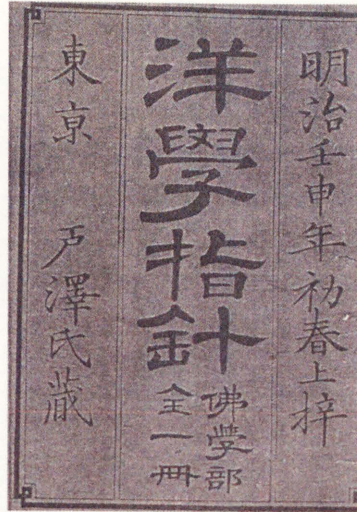 明治壬申年初春上梓
洋學指針
佛學部
全一冊
東京 戸澤氏蔵